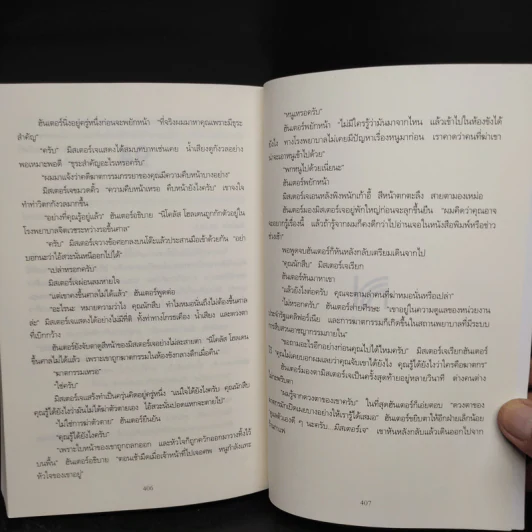 ฮันเตอร์นิ่งอยู่ครู่หนึ่งก่อนจะพยักหน้า "ที่จริงผมมาหาคุณเพราะมีธุระ
สำคัญ"
"ครับ" มิสเตอร์เจแสดงได้สมบทบาทเช่นเคย น้ำเสียงดูกังวลอย่าง
พอเหมาะพอดี "ธุระสำคัญอะไรเหรอครับ"
"ผมมาแจ้งว่าคดีฆาตกรรมภรรยาของคุณมีความคืบหน้าบางอย่าง"
มิสเตอร์เจขมวดคิ้ว "ความคืบหน้าเหรอ คืบหน้ายังไงครับ" เขาจงใจ
ทำท่าวิตกกังวลมากขึ้น
"อย่างที่คุณรู้อยู่แล้ว" ฮันเตอร์อธิบาย "นิโคลัส โฮลเดนถูกกักตัวอยู่ใน
โรงพยาบาลจิตเวชระหว่างรอขึ้นศาล"
"ครับ" มิสเตอร์เจวางข้อศอกลงบนโต๊ะแล้วประสานมือเข้าด้วยกัน "อย่า
บอกนะว่าไอ้สวะนั่นหนีออกไปได้"
"เปล่าหรอกครับ"
มิสเตอร์เจผ่อนลมหายใจ
"แต่เขาคงขึ้นศาลไม่ได้แล้ว" ฮันเตอร์พูดต่อ
"อะไรนะ หมายความว่าไง คุณนักสืบ ทำไมหมอนั่นถึงไม่ต้องขึ้นศาล
ล่ะ" มิสเตอร์เจแสดงได้อย่างไม่มีที่ติ ทั้งท่าทางโกรธเคือง น้ำเสียง และดวงตา
ที่เบิกกว้าง
ฮันเตอร์ยังจับตาดูสีหน้าของมิสเตอร์เจอย่างไม่ละสายตา "นิโคลัส โฮลเดน
ขึ้นศาลไม่ได้แล้ว เพราะเขาถูกฆาตกรรมในห้องขังกลางดึกเมื่อคืน"
"ฆาตกรรมเหรอ"
"ใช่ครับ"
มิสเตอร์เจแสร้งทำเป็นครุ่นคิดอยู่ครู่หนึ่ง "แน่ใจได้ยังไงครับ คุณนักสืบ
คุณรู้ได้ยังไงว่ามันไม่ได้ฆ่าตัวตายเอง ไอ้สวะนั่นบ่อนแทกจะตายไป"
"ไม่ใช่การฆ่าตัวตาย" ฮันเตอร์ยืนยัน
"คุณรู้ได้ยังไงครับ"
"เพราะใบหน้าของเขาถูกถลกออก และหัวใจก็ถูกควักออกมาวางทิ้งไว้
บนพื้น" ฮันเตอร์อธิบาย "ตอนเช้ามืดเมื่อเจ้าหน้าที่ไปเจอศพ หนูกำลังแทะ
หัวใจของเขาอยู่"
406
"หนูเหรอครับ"
ฮันเตอร์พยักหน้า "ไม่มีใครรู้ว่ามันมาจากไหน แล้วเข้าไปในห้องขังได้
ยังไง ทางโรงพยาบาลไม่เคยมีปัญหาเรื่องหนูมาก่อน เราคาดว่าคนที่ฆ่าเขา
น่าจะเอาหนูเข้าไปด้วย"
"พกหนูไปด้วยเนี่ยนะ"
ฮันเตอร์พยักหน้า
มิสเตอร์เจเอนหลังพิงพนักเก้าอี้ สีหน้าตกตะลึง สายตามองเหม่อ
ฮันเตอร์มองมิสเตอร์เจอยู่พักใหญ่ก่อนจะลุกขึ้นยืน "ผมคิดว่าคุณอาจ
จะอยากรู้เรื่องนี้ แล้วถ้ารู้จากผมก็คงดีกว่าไปอ่านเจอในหนังสือพิมพ์หรือข่าว
ช่วงเช้า"
พอพูดจบฮันเตอร์ก็หันหลังกลับเตรียมเดินจากไป
"คุณนักสืบ" มิสเตอร์เจเรียก
ฮันเตอร์หันมาหาเขา
"แล้วยังไงต่อครับ คุณจะตามล่าคนที่ฆ่าหมอนั่นหรือเปล่า"
"ไม่หรอกครับ" ฮันเตอร์ส่ายศีรษะ "เขาอยู่ในความดูแลของหน่วยงาน
ประจำรัฐแคลิฟอร์เนีย และการฆาตกรรมก็เกิดขึ้นในสถานพยาบาลที่มีระบบ
"ขอถามอะไรอีกอย่างก่อนคุณไปได้ไหมครับ" มิสเตอร์เจเรียกฮันเตอร์
ฮันเตอร์มองตามิสเตอร์เจเป็นครั้งสุดท้ายอยู่หลายวินาที
407